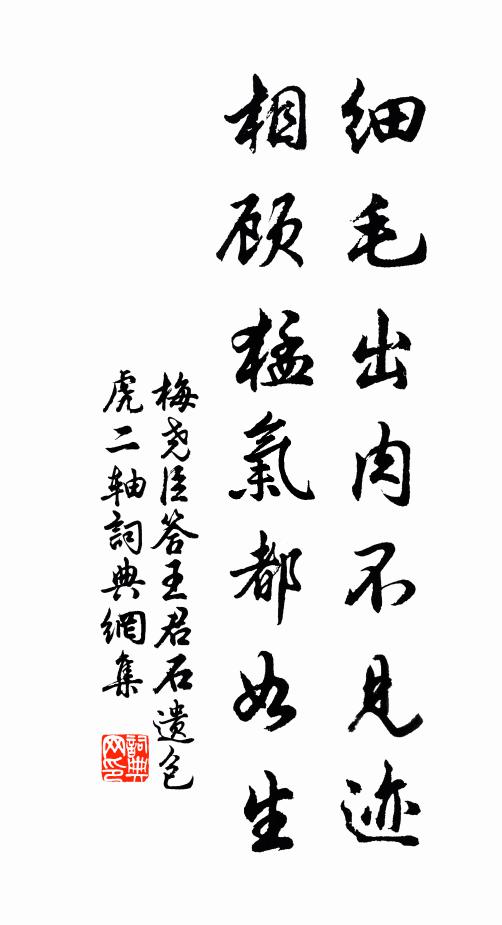 细毛出肉不见迹
相顾猛氣都如生
梅尧臣答王君石遗包
虎二轴詞典網集
詞典
网印